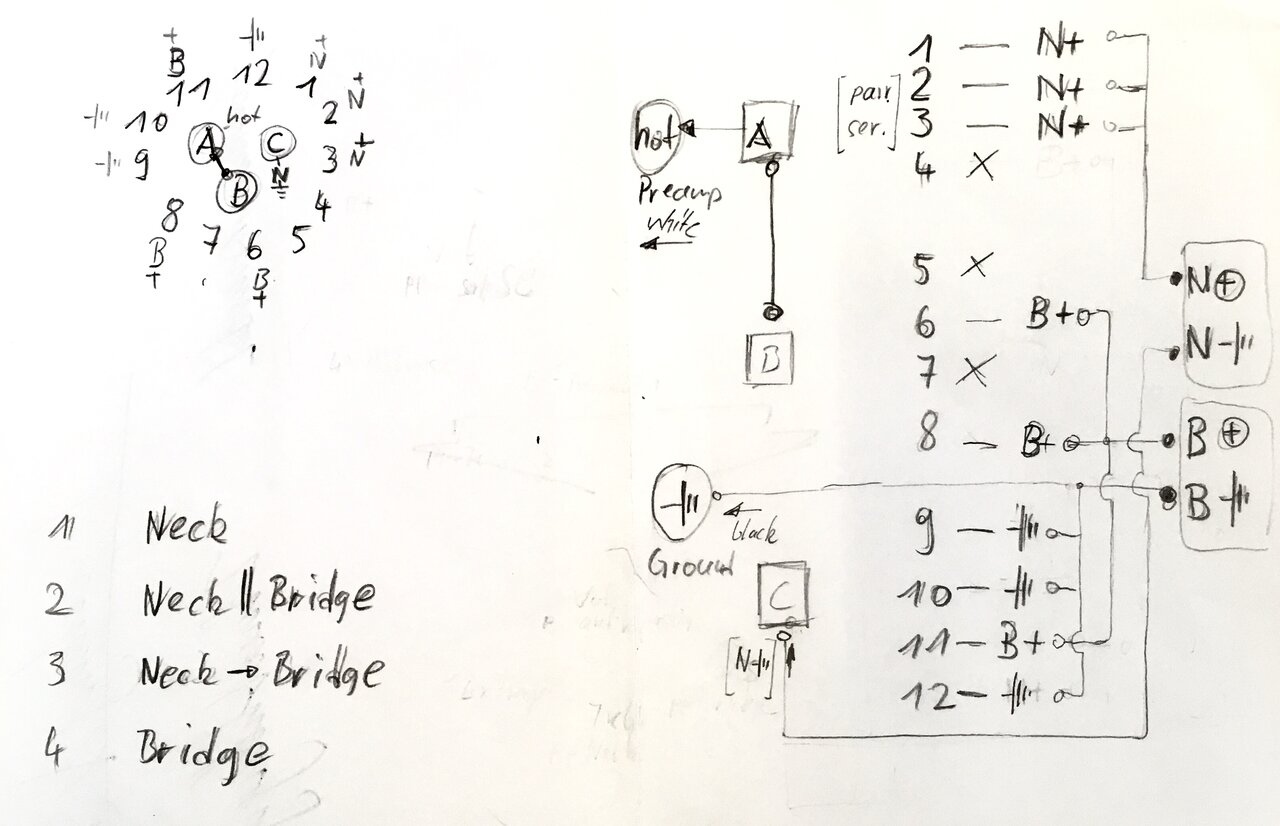 + +
B 12 N
11 1 + N
10 hot 2
A C
9 N 3 N+
B
8 4
7 6 5
B B
+ +
1 Neck
2 Neck || Bridge
3 Neck → Bridge
4 Bridge
hot A
Preamp
white
B
Ground
black
C
[N]
1 — N+
[pair. 2 — N+
ser.] 3 — N+
4 × B+
5 ×
6 — B+
7 ×
8 — B+
9 —
10 —
11 — B+
12 —
N+
N
B+
B